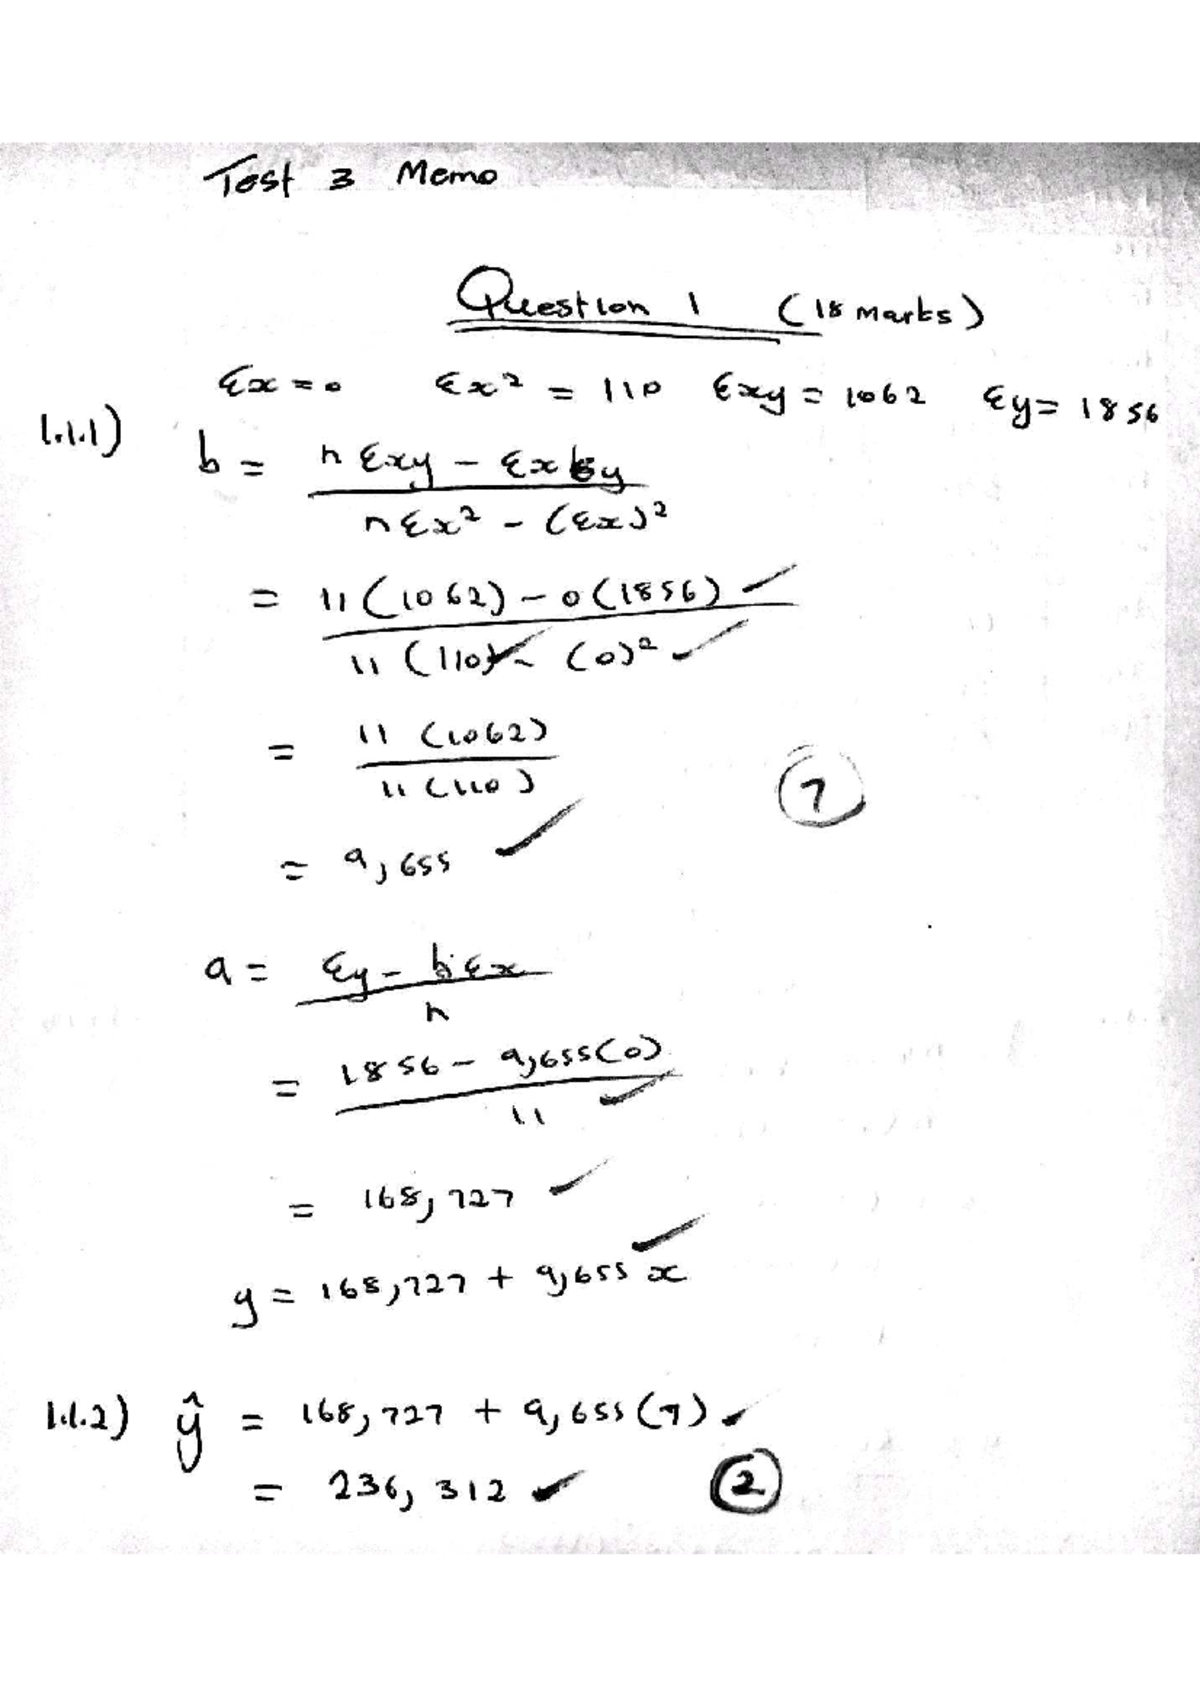 Test 3 Memo
Question 1 (18 marks)
Σx = 0 Σx² = 110 Σxy = 1062 Σy = 1856
1.1.1) b = nΣxy - ΣxΣy
nΣx² - (Σx)²
= 11(1062) - 0(1856) ✓
11(110)✓ - (0)² ✓
= 11(1062)
11(110)
7
= 9,655 ✓
a = Σy - bΣx
n
= 1856 - 9,655(0)
11 ✓
= 168,727 ✓
y = 168,727 + 9,655x ✓
1.1.2) ŷ = 168,727 + 9,655(7) ✓
= 236,312 ✓ 2